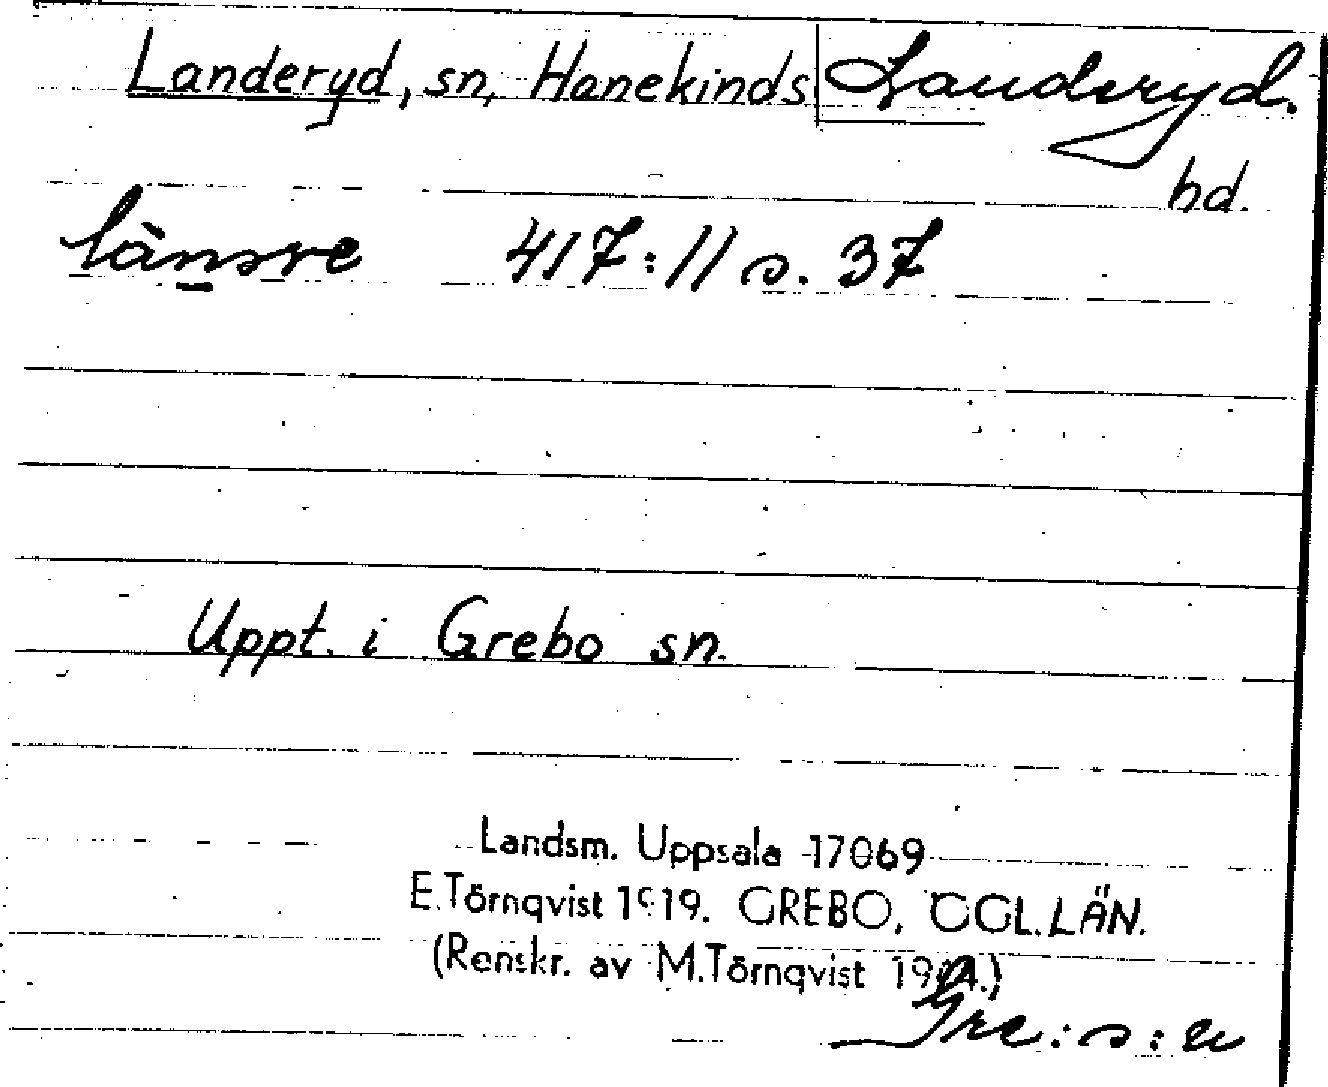 Landeryd, sn, Hanekinds Landeryd.
hd.
417:11 s. 37
Uppt. i Grebo sn.
Landsm. Uppsala 17069
E. Törnqvist 1919. GREBO, ÖGL. LÄN.
(Renskr. av M. Törnqvist